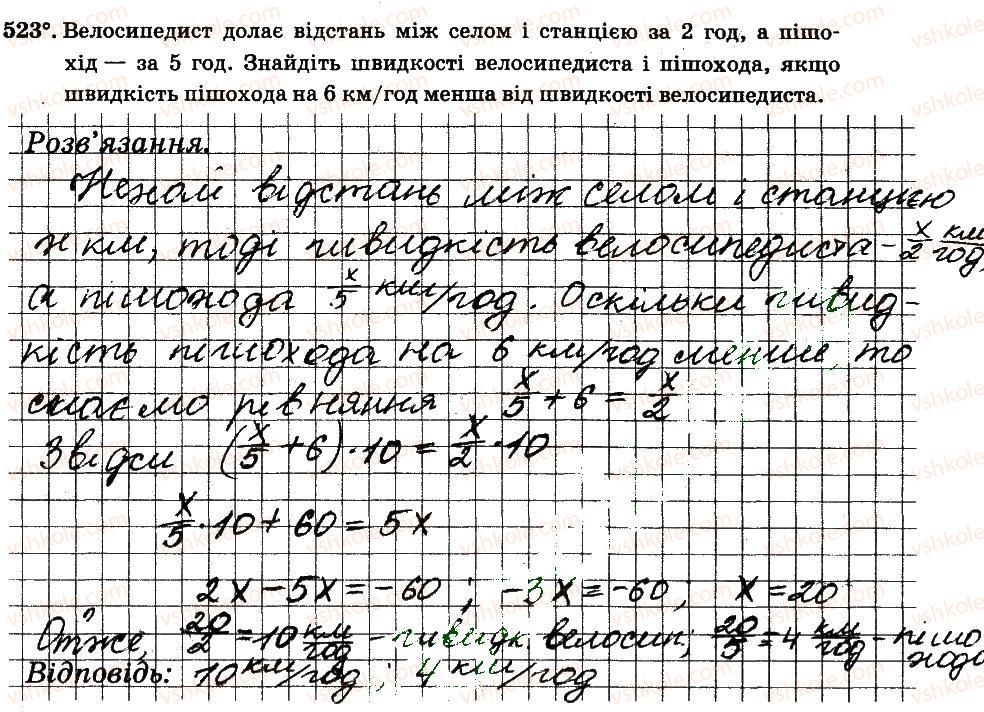 523°. Велосипедист долає відстань між селом і станцією за 2 год, а пішо-
хід — за 5 год. Знайдіть швидкості велосипедиста і пішохода, якщо
швидкість пішохода на 6 км/год менша від швидкості велосипедиста.
Розв'язання.
Нехай відстань між селом і станцією
x км, тоді швидкість велосипедиста - x/2 км/год,
а пішохода x/5 км/год. Оскільки швид-
кість пішохода на 6 км/год менше, то
маємо рівняння x/5 + 6 = x/2
Звідси (x/5 + 6) · 10 = x/2 · 10
x/5 · 10 + 60 = 5x
2x - 5x = -60 ; -3x = -60 ; x = 20
Отже, 20/2 = 10 км/год - швидк. велосип; 20/5 = 4 км/год - пішо
хода
Відповідь: 10 км/год ; 4 км/год